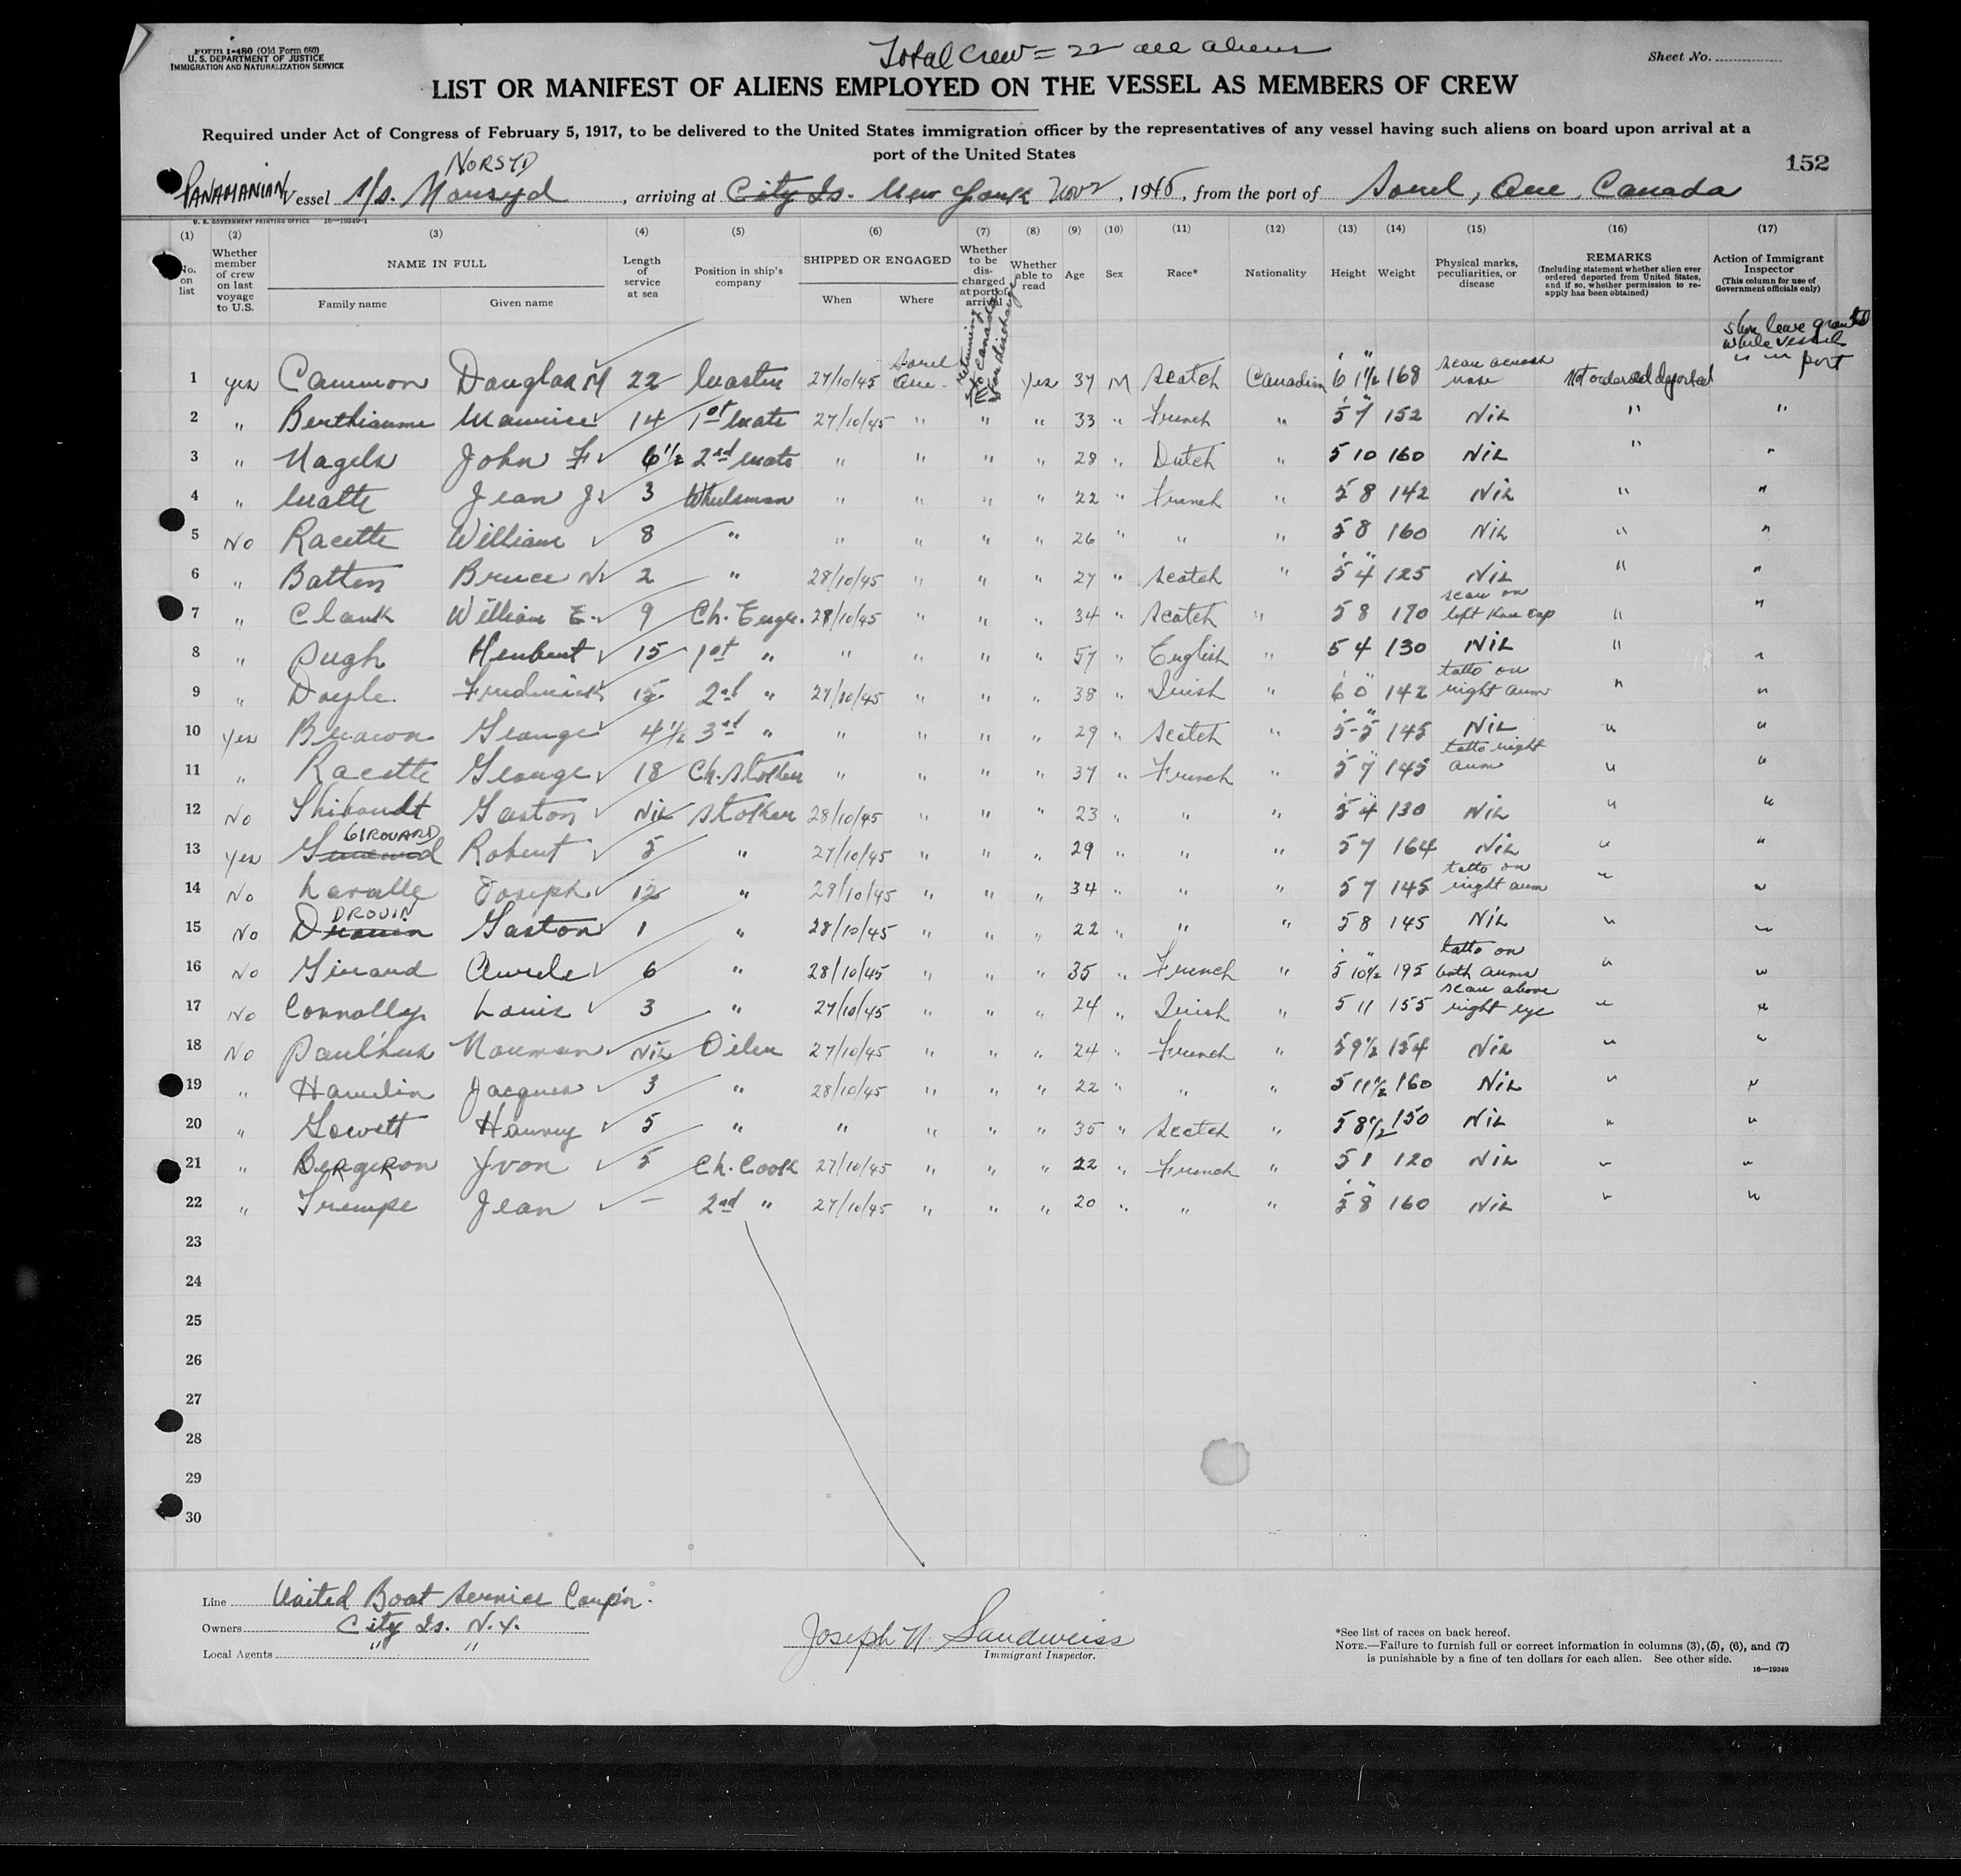 Form I-480 (Old Form 680)
U. S. DEPARTMENT OF JUSTICE
IMMIGRATION AND NATURALIZATION SERVICE
Total Crew = 22 all aliens
Sheet No.
LIST OR MANIFEST OF ALIENS EMPLOYED ON THE VESSEL AS MEMBERS OF CREW
Required under Act of Congress of February 5, 1917, to be delivered to the United States immigration officer by the representatives of any vessel having such aliens on board upon arrival at a
port of the United States
152
NORSYD
PANAMANIAN Vessel S/S. Norsyd, arriving at City Is. New York Nov 2, 1945, from the port of Sorel, Que, Canada
U. S. GOVERNMENT PRINTING OFFICE 16—19349-1
(1) (2) (3) (4) (5) (6) (7) (8) (9) (10) (11) (12) (13) (14) (15) (16) (17)
No. on list
Whether member of crew on last voyage to U.S.
NAME IN FULL
Family name Given name
Length of service at sea
Position in ship's company
SHIPPED OR ENGAGED
When Where
Whether to be discharged at port of arrival
Whether able to read
Age Sex Race* Nationality Height Weight
Physical marks, peculiarities, or disease
REMARKS
(Including statement whether alien ever ordered deported from United States, and if so, whether permission to reapply has been obtained)
Action of Immigrant Inspector
(This column for use of Government officials only)
Returning to Canada for discharge
shore leave granted while vessel is in port
1 yes Cammon Douglas M 22 Master 27/10/45 Sorel Que. Yes 37 M Scotch Canadian 6' 1½" 168 scar across nose Not ordered deported
2 " Berthiaume Maurice 14 1st Mate 27/10/45 " " " 33 " French " 5' 7" 152 Nil " "
3 " Nagels John F 6½ 2nd Mate " " " " 28 " Dutch " 5 10 160 Nil " "
4 " Matte Jean J. 3 Wheelsman " " " " 22 " French " 5 8 142 Nil " "
5 No Racette William 8 " " " " " 26 " " " 5 8 160 Nil " "
6 " Batten Bruce N. 2 " 28/10/45 " " " 27 " Scotch " 5' 4" 125 Nil " "
7 " Clark William E. 9 Ch. Engr. 28/10/45 " " " 34 " Scotch " 5 8 170 scar on left knee cap " "
8 " Pugh Herbert 15 1st " " " " " 57 " English " 5 4 130 Nil " "
9 " Doyle Frederick 15 2nd " 27/10/45 " " " 38 " Irish " 6' 0" 142 tatto on right arm " "
10 Yes Brown George 4½ 3rd " " " " " 29 " Scotch " 5'-5" 145 Nil " "
11 " Racette George 18 Ch. Stoker " " " " 37 " French " 5' 7" 145 tatto right arm " "
12 No Thibault Gaston Nil Stoker 28/10/45 " " " 23 " " " 5' 4" 130 Nil " "
GIROUARD
13 yes Robert 5 " 27/10/45 " " " 29 " " " 5 7 164 Nil " "
14 No Lavalle Joseph 12 " 29/10/45 " " " 34 " " " 5 7 145 tatto on right arm " "
DROUIN
15 No Drouin Gaston 1 " 28/10/45 " " " 22 " " " 5 8 145 Nil " "
16 No Girard Aurele 6 " 28/10/45 " " " 35 " French " 5' 10½" 195 tatto on both arms " "
17 No Connolly Louis 3 " 27/10/45 " " " 24 " Irish " 5 11 155 scar above right eye " "
18 No Paulhus Norman Nil Oiler 27/10/45 " " " 24 " French " 5 9½ 154 Nil " "
19 " Hamelin Jacques 3 " 28/10/45 " " " 22 " " " 5 11½ 160 Nil " "
20 " Gowett Harvey 5 " " " " " 35 " Scotch " 5 8½ 150 Nil " "
21 " Bergeron Yvon 5 Ch. Cook 27/10/45 " " " 22 " French " 5 1 120 Nil " "
22 " Trempe Jean — 2nd " 27/10/45 " " " 20 " " " 5' 8" 160 Nil " "
23
24
25
26
27
28
29
30
Line United Boat Service Corp'n.
Owners City Is. N.Y.
Local Agents " "
Joseph N. Sandweiss
Immigrant Inspector.
*See list of races on back hereof.
NOTE.—Failure to furnish full or correct information in columns (3), (5), (6), and (7)
is punishable by a fine of ten dollars for each alien. See other side.
16—19349